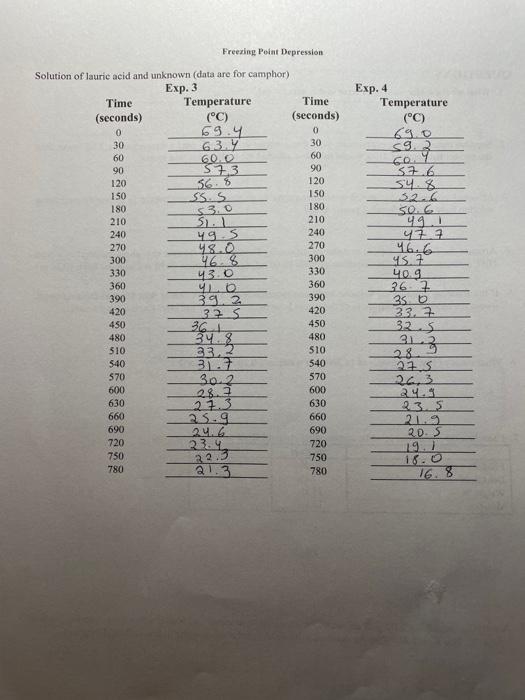 Freezing Point Depression
Solution of lauric acid and unknown (data are for camphor)
Exp. 3 Exp. 4
Time Temperature Time Temperature
(seconds) (°C) (seconds) (°C)
0 69.4 0 69.0
30 63.4 30 59.2
60 60.0 60 60.4
90 57.3 90 57.6
120 56.8 120 54.8
150 55.5 150 52.6
180 53.0 180 50.6
210 51.1 210 49.1
240 49.5 240 47.7
270 48.0 270 46.6
300 46.8 300 45.7
330 43.0 330 40.9
360 41.0 360 36.7
390 39.2 390 35.0
420 37.5 420 33.7
450 36.1 450 32.5
480 34.8 480 31.2
510 33.2 510 28.9
540 31.7 540 27.5
570 30.2 570 26.3
600 28.7 600 24.9
630 27.3 630 23.5
660 25.9 660 21.9
690 24.6 690 20.5
720 23.4 720 19.1
750 22.3 750 18.0
780 21.3 780 16.8